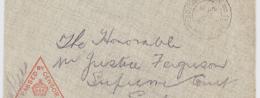 PASSED BY CENSOR
The Honorable
Mr Justice Ferguson
Supreme Court